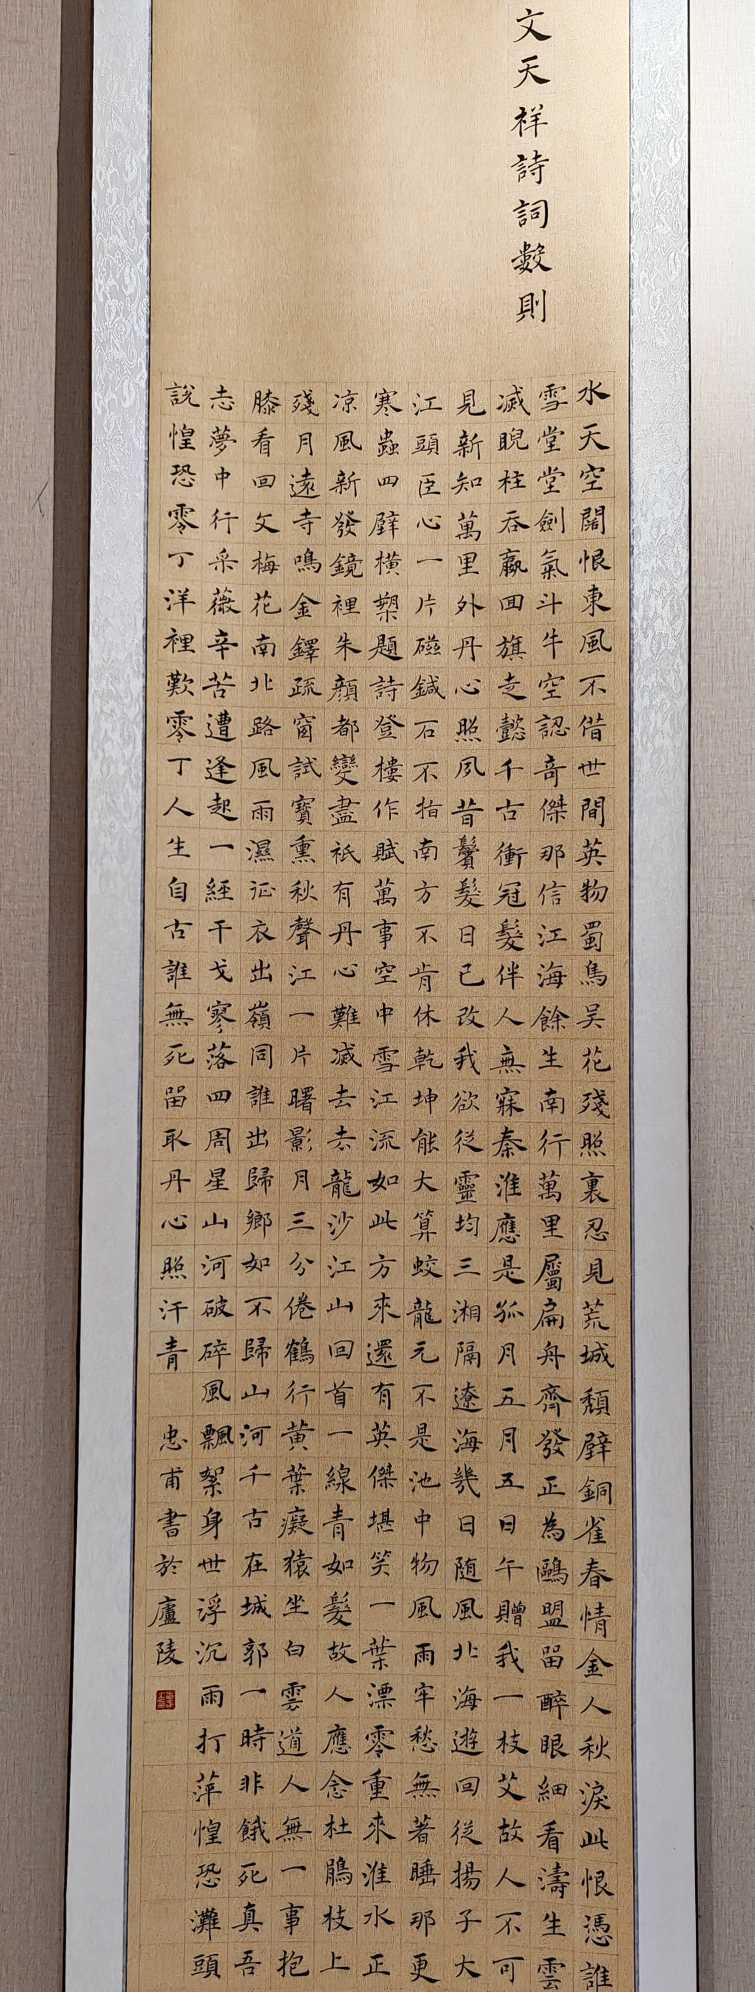 文天祥詩詞數則
水天空闊恨東風不借世間英物蜀鳥吳花殘照裏忍見荒城頹壁銅雀春情金人秋淚此恨憑誰
雪堂堂劍氣斗牛空認奇傑那信江海餘生南行萬里屬扁舟齊發正為鷗盟留醉眼細看濤生雲
滅睨柱吞嬴回旗走懿千古衝冠髮伴人無寐秦淮應是孤月五月五日午贈我一枝艾故人不可
見新知萬里外丹心照夙昔鬢髮日已改我欲從靈均三湘隔遼海幾日随風北海遊回從揚子大
江頭臣心一片磁鍼石不指南方不肯休乾坤能大算蛟龍元不是池中物風雨牢愁無著睡那更
寒蟲四壁橫槊題詩登樓作賦萬事空中雪江流如此方來還有英傑堪笑一葉漂零重來淮水正
凉風新發鏡裡朱顏都變盡祇有丹心難滅去去龍沙江山回首一線青如髮故人應念杜鵑枝上
殘月遠寺鳴金鐸疏窗試寶熏秋聲江一片曙影月三分倦鶴行黃葉癡猿坐白雲道人無一事抱
膝看回文梅花南北路風雨濕征衣出嶺同誰出歸鄉如不歸山河千古在城郭一時非餓死真吾
志夢中行采薇辛苦遭逢起一經干戈寥落四周星山河破碎風飄絮身世浮沉雨打萍惶恐灘頭
說惶恐零丁洋裡歎零丁人生自古誰無死留取丹心照汗青 忠甫書於廬陵